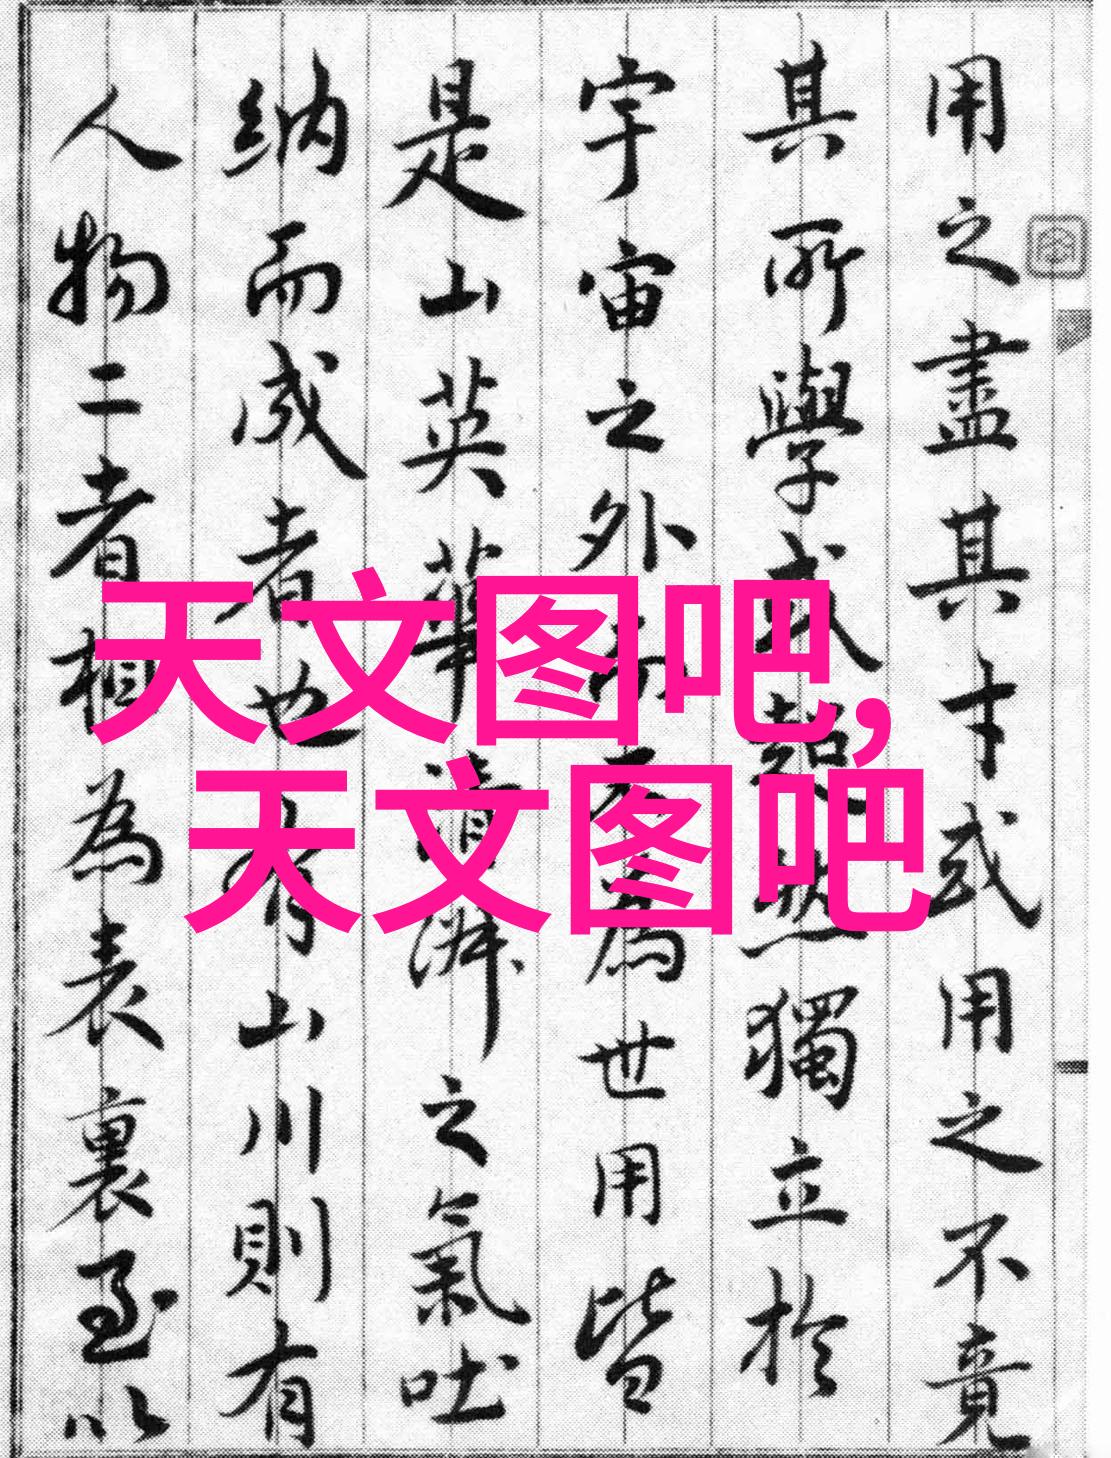 用之盡其才或用之不竟
其所學或超然獨立於
宇宙之外而不為世用皆
是山英華清淑之氣吐
納而成者也有山川則有
人物二者相為表裏至以
天文图吧,
天文图吧